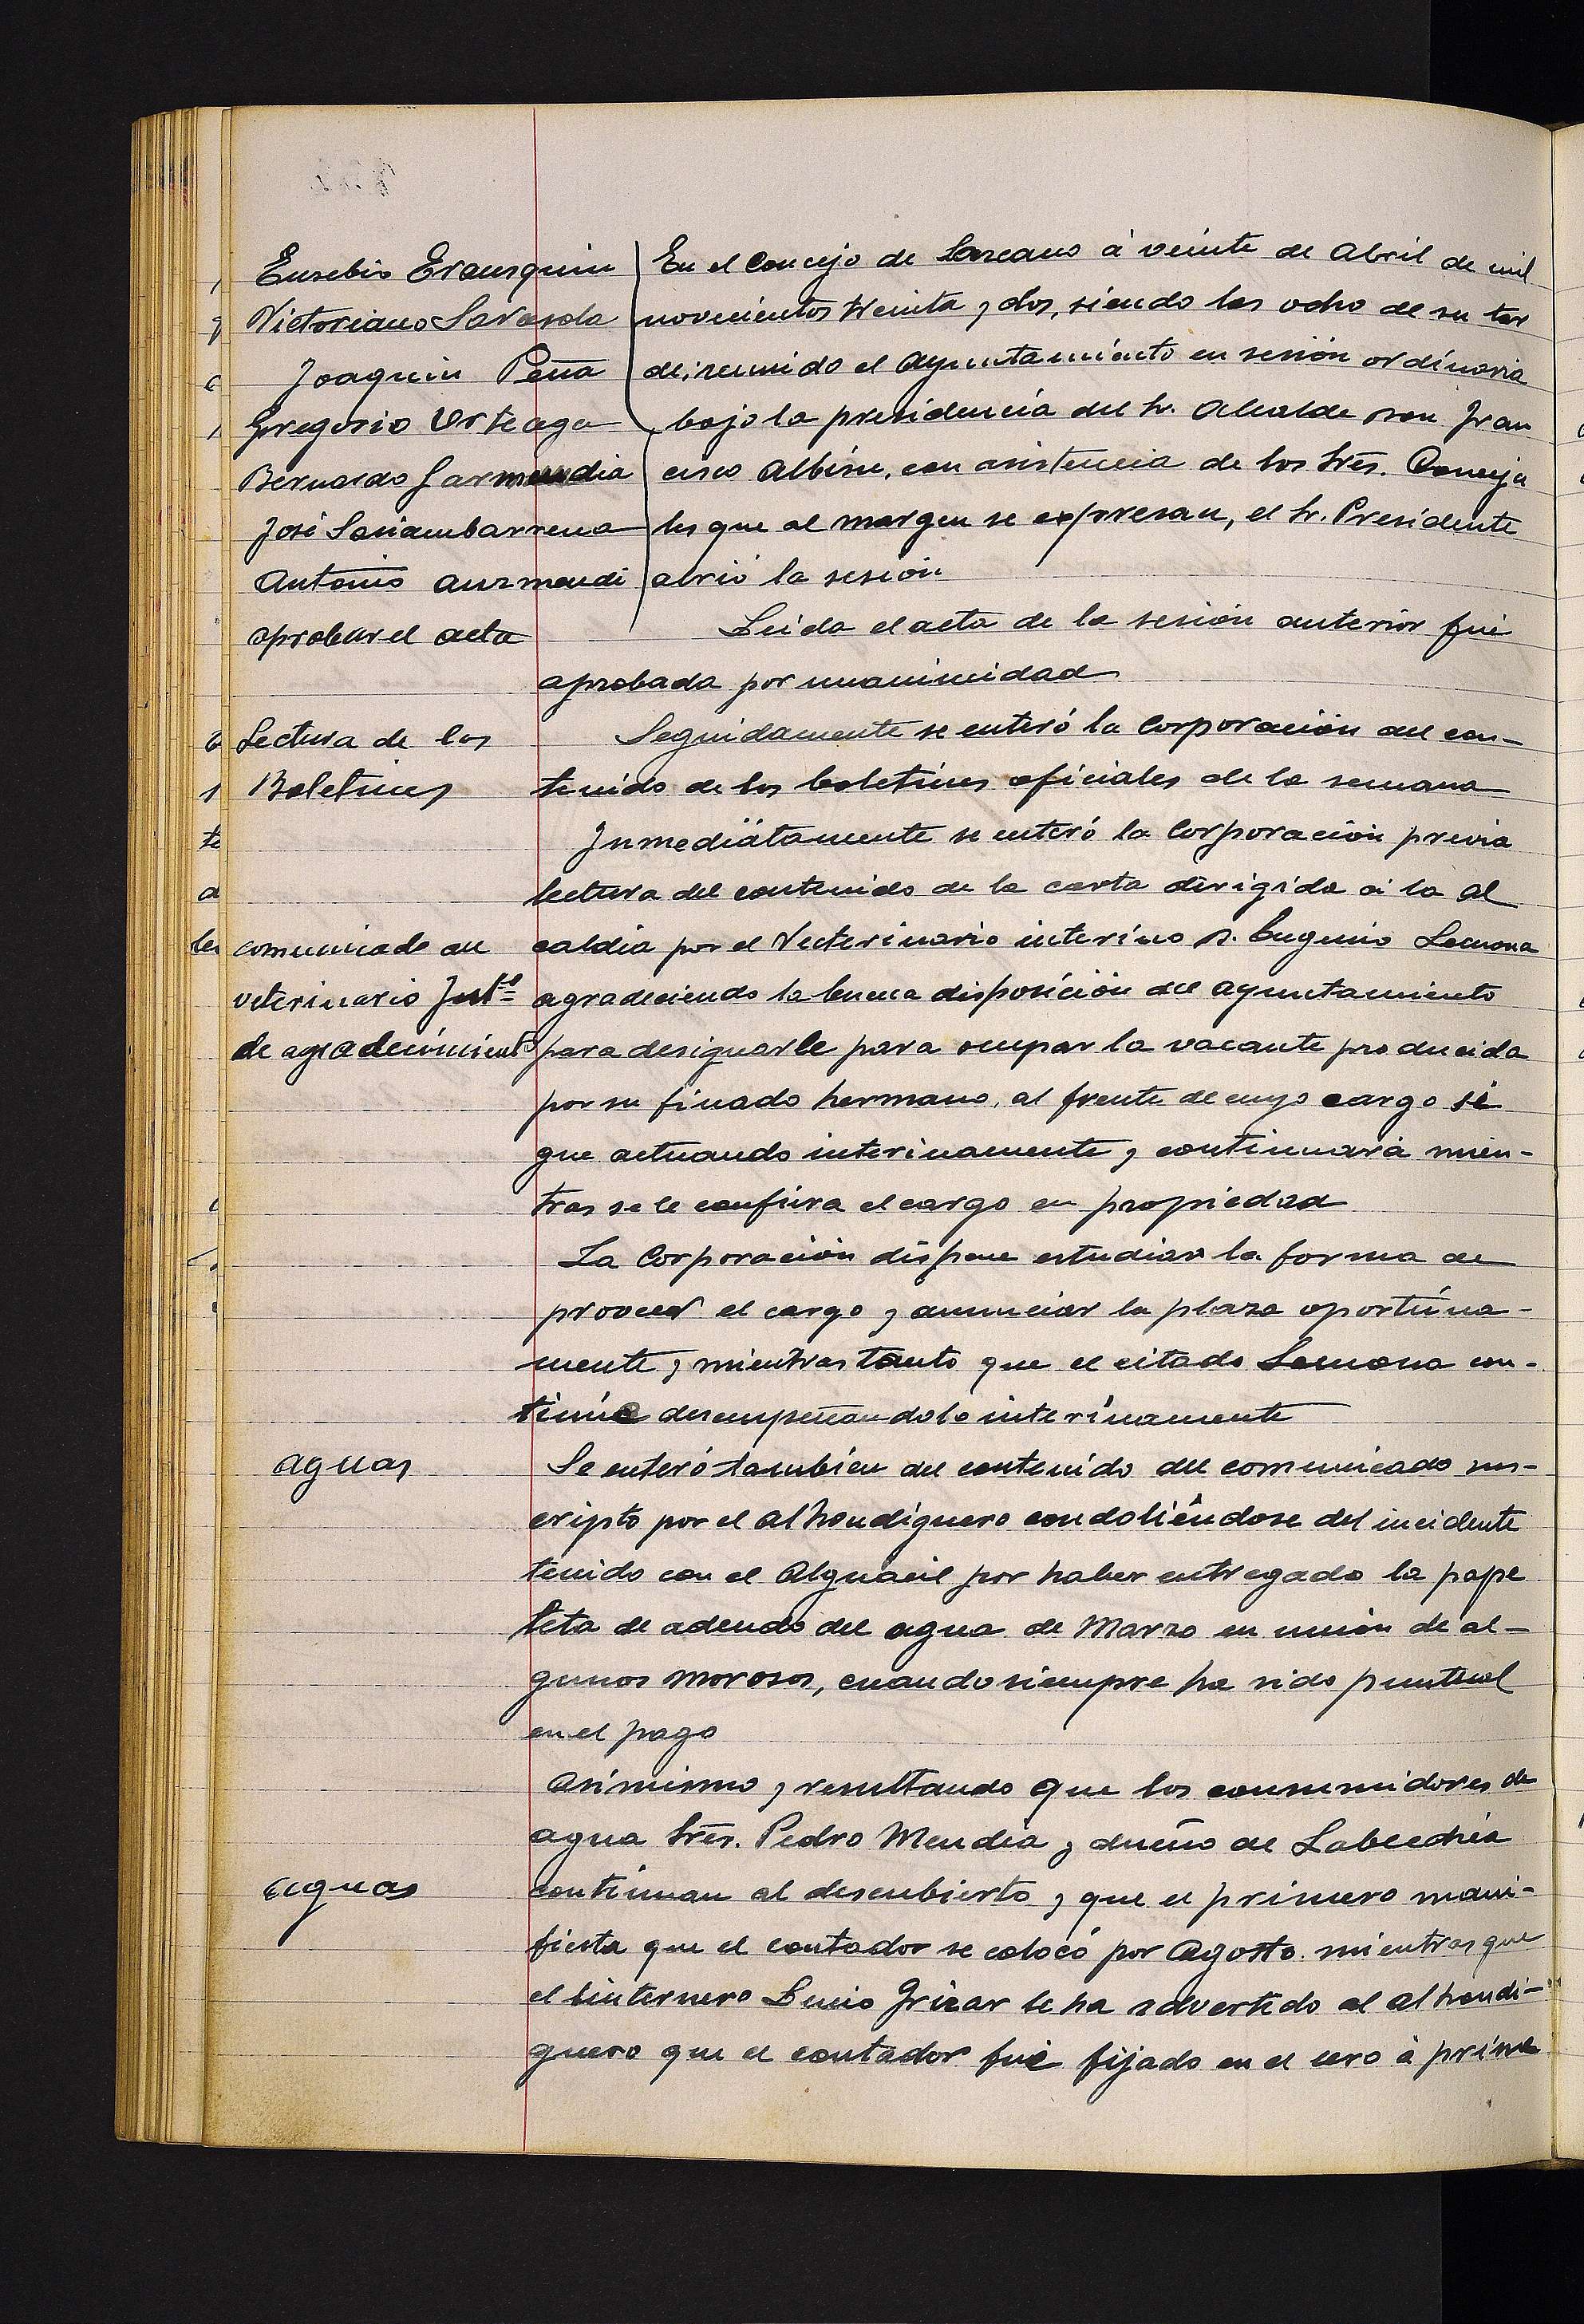 Eusebio Erausquin
Victoriano Sarasola
Joaquin Peña
Gregorio Urteaga
Bernardo Garmendia
José Sariambarrena
Antonio Aurmendi
En el Concejo de Lazcano á veinte de Abril de mil
novecientos treinta y dos, siendo las ocho de su tar
de, reunido el Ayuntamiento en sesión ordinaria
bajo la presidencia del Sr. Alcalde Don Fran
cisco Albisu, con asistencia de los Sres. Conceja
les que al margen se expresan, el Sr. Presidente
abrió la sesión
aprobar el acta
Leida el acta de la sesión anterior fué
aprobada por unanimidad
Lectura de los
Boletines
Seguidamente se enteró la Corporación del con-
tenido de los boletines oficiales de la semana
Inmediatamente se enteró la Corporación previa
lectura del contenido de la carta dirigida á la al
comunicado del
veterinario Int.º
de agradecimiento
caldia por el Veterinario interino D. Eugenio Lecuona
agradeciendo la buena disposición del ayuntamiento
para designarle para ocupar la vacante producida
por su finado hermano, al frente de cuyo cargo si
gue actuando interinamente y continuará mien-
tras se le confiera el cargo en propiedad
La Corporación dispone estudiar la forma de
proveer el cargo y anunciar la plaza oportuna-
mente y mientras tanto que el citado Lecuona con-
tinúe desempeñandolo interinamente
aguas
Se enteró tambien del contenido del comunicado sus-
cripto por el alhondiguero condoliéndose del incidente
tenido con el Alguacil por haber entregado la pape
leta de adeudo del agua de Marzo en unión de al-
gunos morosos, cuando siempre ha sido puntual
en el pago
Asimismo y resultando que los consumidores de
agua Sres. Pedro Mendia y dueño de
aguas
continuan al descubierto y que el primero mani-
fiesta que el contador se colocó por Agosto mientras que
el linternero Lucio ha advertido al alhondi-
guero que el contador fué fijado en el cero á prime